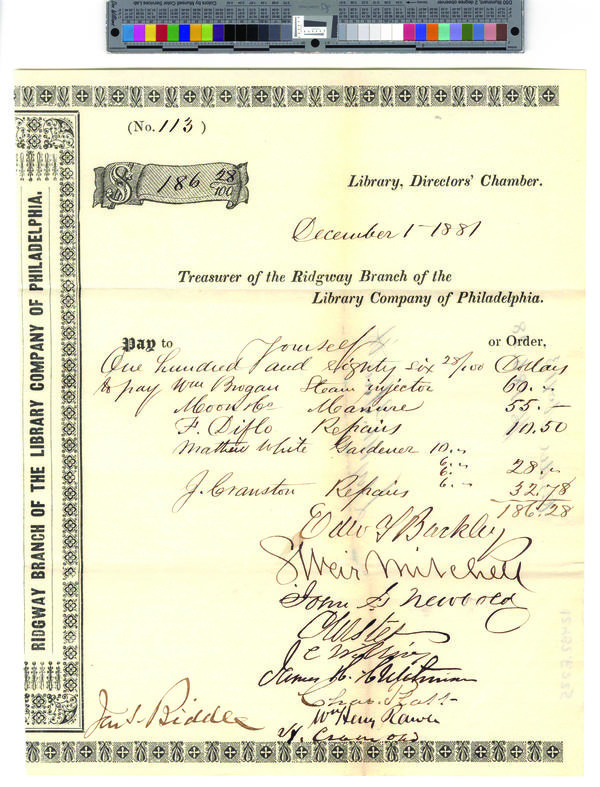 RIDGWAY BRANCH OF THE LIBRARY COMPANY OF PHILADELPHIA.
(No. 113 )
$ 186 28/100
Library, Directors' Chamber.
December 1 - 1881
Treasurer of the Ridgway Branch of the
Library Company of Philadelphia.
Pay to Yourself or Order,
One hundred and Eighty six 28/100 Dollars
to pay Wm Brogan Steam injector 60.
Moon & Co Manure 55.
F. Repairs 10.50
Mathew White Gardener 10.
6.
6.
6. 28.
J. Cranston Repairs 32.78
186.28
Edw Y Barkley
S Weir Mitchell
John S Newbold
J C
James H.
Chas. Platt
Wm Henry Rawle
Jas S. Biddle